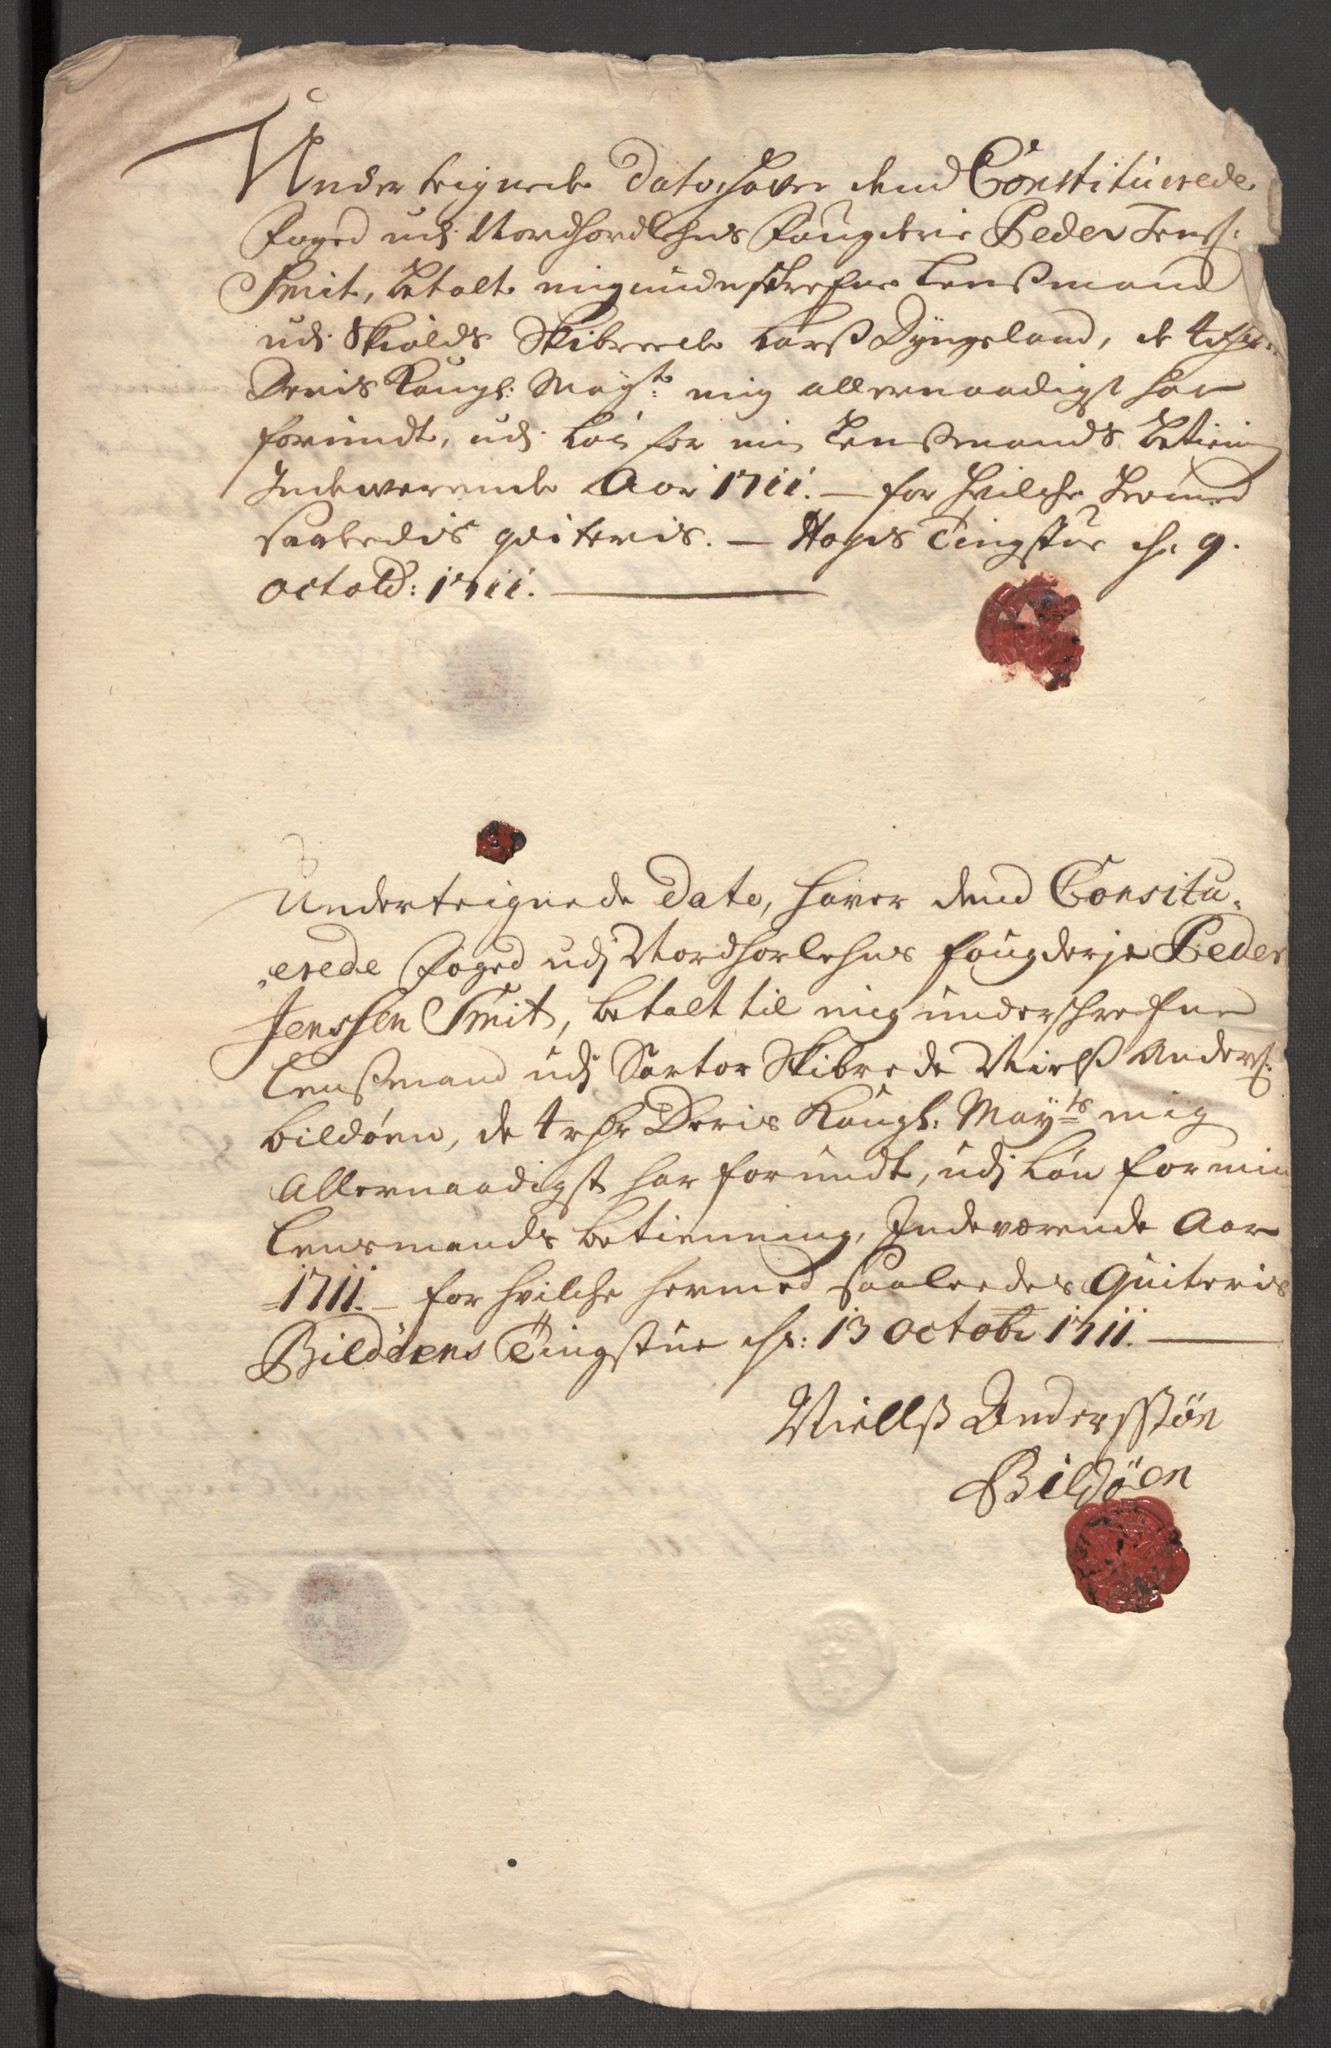 Underteignede Dato hafver dend Constituerede
Foged udj Nordhordlehns Fougderie Peder Jenss:
Smit, betalt mig underskrefne Lenßmand
udj Skiolds Skibrede Larß Dyngeland, de 4 rdr
Deris Kongl: Mayts mig allernaadigst har
forundt, udj Løn for min Lenßmands betiening
Indewerende Aar 1711. — for hvilche hermed
saaledis qviteris. — Hops Tingstue d. 9.
octobr: 1711.
Underteignede Dato, hafver dend Consitu,
,erede Foged udj Nordhorlehns fougderje Peder
Jenssen Smit, betalt til mig underschrefne
Lenßmand udj Sartor Skibrede Nielß Anders:
bildøen, de 4 rdr Deris Kongl: Mayts mig
Allernaadigst har forundt, udj Løn for min
Lensmands betienning, Indeværende Aar
1711. — for hvilche hermed saaleedes Quiteris
Bildøens Tingstue d: 13 octobr 1711.
Niellß Andersßøn
Bildøen